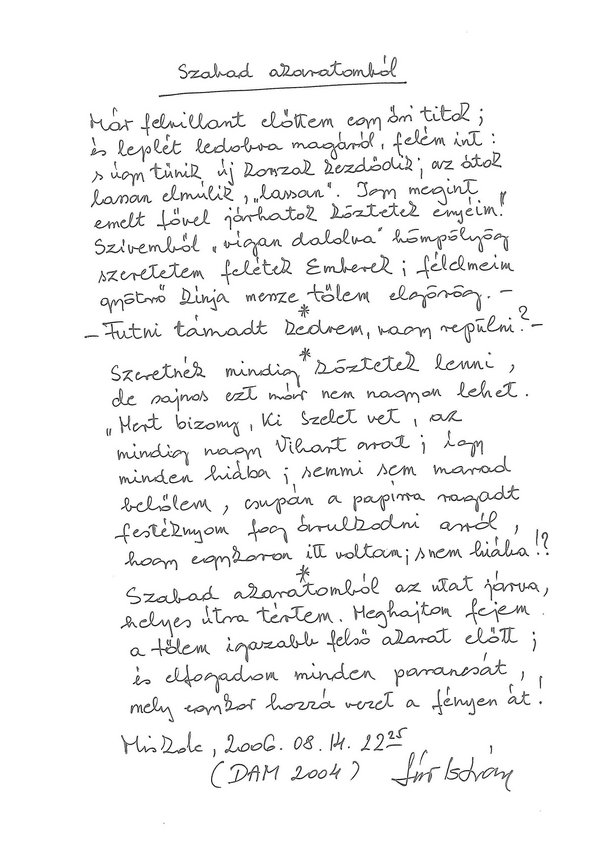 Szabad akaratomból
Már felvillant előttem egy ősi titok;
és leplét ledobva magáról, felém int:
s úgy tűnik új korszak kezdődik; az átok
lassan elmúlik, „lassan”. Így megint
emelt fővel járhatok köztetek enyéim!
Szívemből „vígan dalolva” hömpölyög
szeretetem felétek Emberek; félelmeim
gyötrő kínja messze tőlem elgörög. –
*
– Futni támadt kedvem, vagy repülni? –
*
Szeretnék mindig köztetek lenni,
de sajnos ezt már nem nagyon lehet.
„Mert bizony, Ki Szelet vet, az
mindig nagy Vihart arat; így
minden hiába; semmi sem marad
belőlem, csupán a papírra ragadt
festéknyom fog árulkodni arról,
hogy egykoron itt voltam; s nem hiába!?
*
Szabad akaratomból az utat járva,
helyes útra tértem. Meghajtom fejem
a tőlem igazabb felső akarat előtt;
és elfogadom minden parancsát,
mely egykor hozzá vezet a fényen át!
Miskolc, 2006. 08. 14. 22 25
(DAM 2004) István